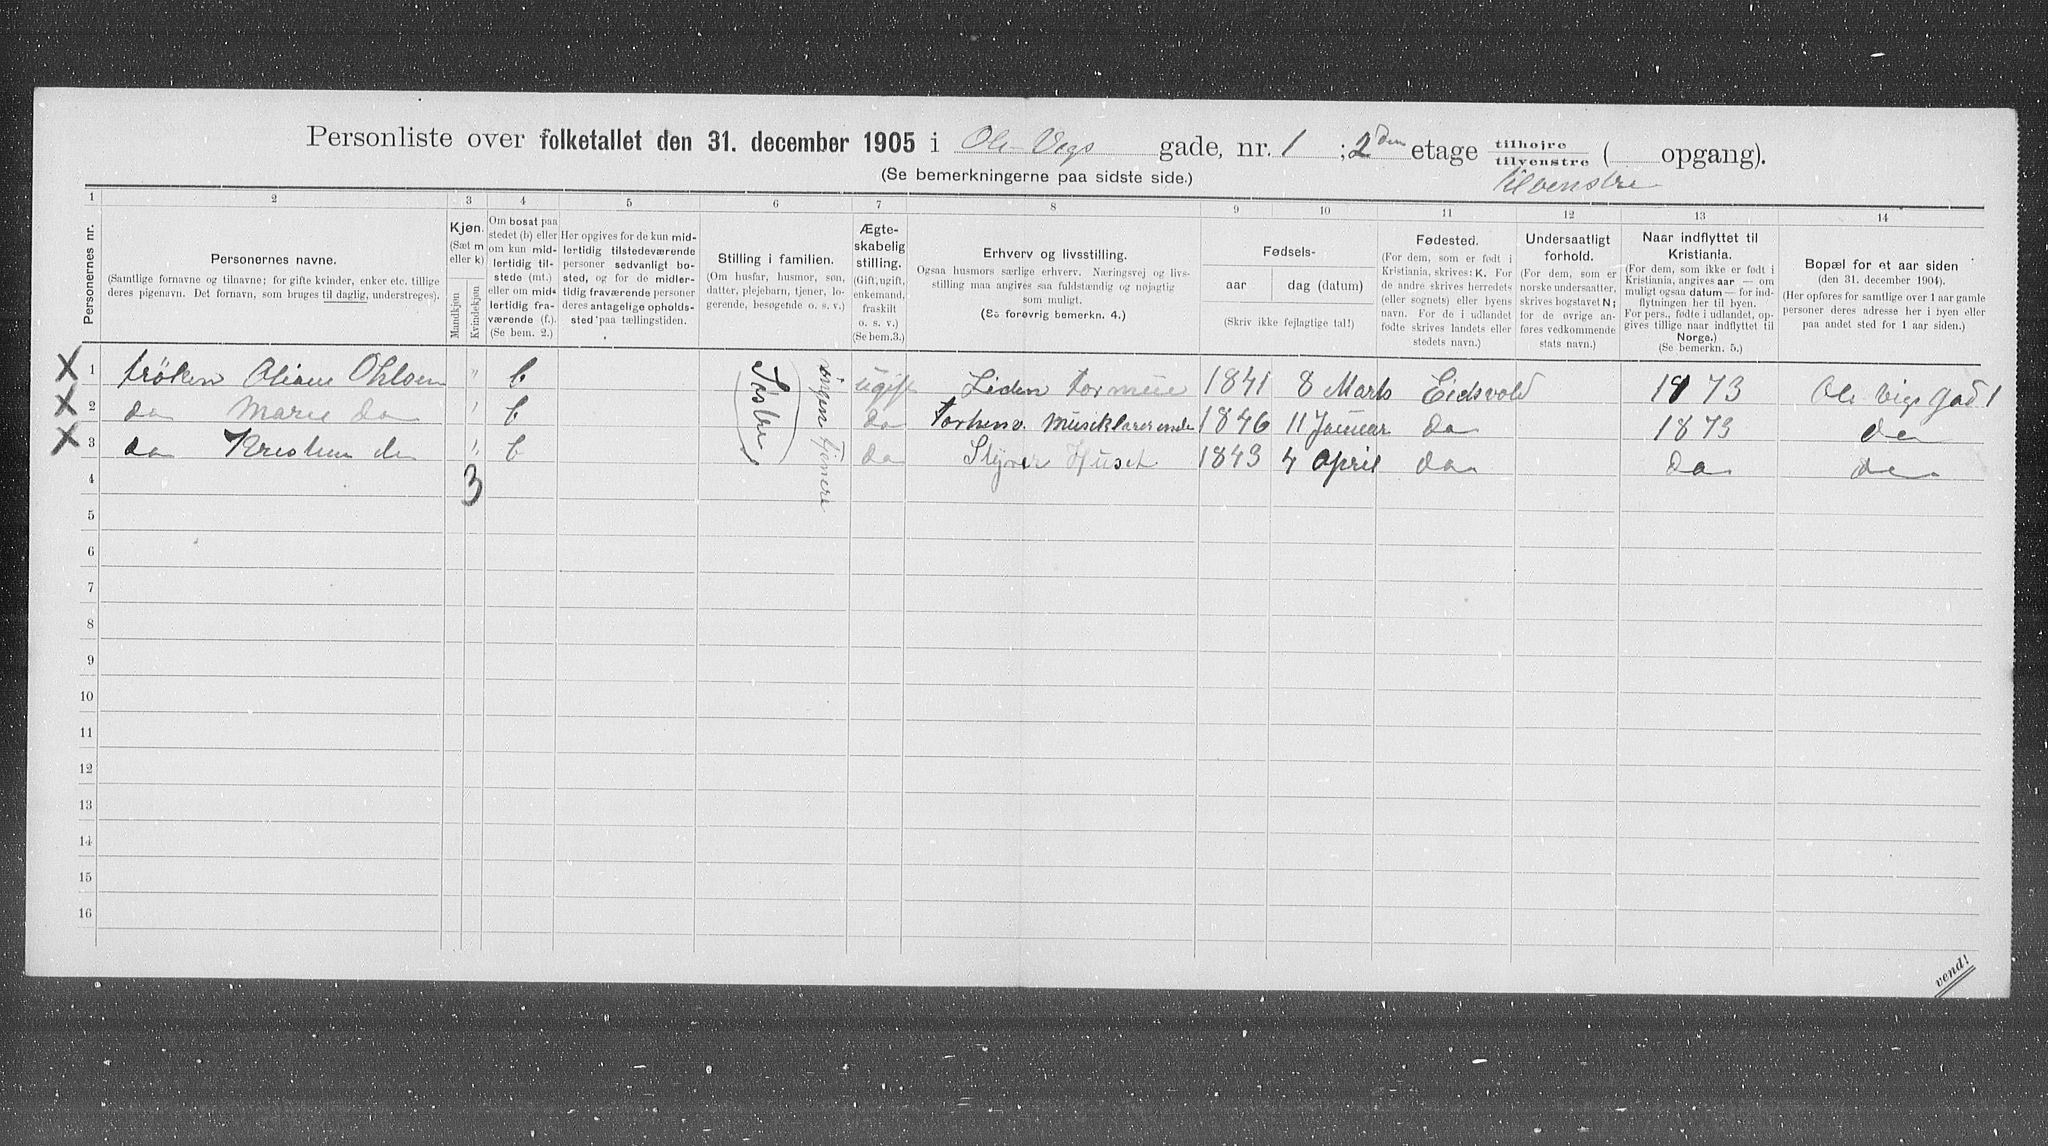 Personliste over folketallet den 31. december 1905 i Ole Vigs gade, nr. 1 ; 2den etage tilhøjre tilvenstre ( opgang).
(Se bemerkningerne paa sidste side.) tilvenstre
1 2 3 4 5 6 7 8 9 10 11 12 13 14
Personernes nr.
Personernes navne.
(Samtlige fornavne og tilnavne; for gifte kvinder, enker etc. tillige deres pigenavn. Det fornavn, som bruges til daglig, understreges).
Kjøn.
(Sæt m eller k)
Mandkjøn
Kvindekjøn
Om bosat paa stedet (b) eller om kun midlertidig tilstede (mt.) eller om midlertidig fraværende (f.). (Se bem. 2.)
Her opgives for de kun midlertidig tilstedeværende personer sedvanligt bosted, og for de midlertidig fraværende personer deres antagelige opholdssted paa tællingstiden.
Stilling i familien.
(Om husfar, husmor, søn, datter, plejebarn, tjener, logerende, besøgende o. s. v.)
Ægteskabelig stilling.
(Gift, ugift, enkemand, fraskilt o. s. v.) (Se bem.3.)
Erhverv og livsstilling.
Ogsaa husmors særlige erhverv. Næringsvej og livsstilling maa angives saa fuldstændig og nøjagtig som muligt.
(Se forøvrig bemerkn. 4.)
Fødsels-
aar
dag (datum)
(Skriv ikke fejlagtige tal!)
Fødested.
(For dem, som er født i Kristiania, skrives: K. For de andre skrives herredets (eller sognets) eller byens navn. For de i udlandet fødte skrives landets eller stedets navn.)
Undersaatligt forhold.
(For dem, som er norske undersaatter, skrives bogstavet N; for de øvrige anføres vedkommende stats navn.)
Naar indflyttet til Kristiania.
(For dem, som ikke er født i Kristiania, angives aar — om muligt ogsaa datum — for indflytningen her til byen. For pers., fødte i udlandet, opgives tillige naar indflyttet til Norge.)
(Se bemerkn. 5.)
Bopæl for et aar siden
(den 31. december 1904).
(Her opføres for samtlige over 1 aar gamle personer deres adresse her i byen eller paa andet sted for 1 aar siden.)
X 1 frøken Oliane Ohlsen " b ugift Liden formue 1841 8 Marts Eidsvold 1873 Ole Vigs Gad 1
X 2 do Marie do " b do Forhenv. Musiklærerinde 1846 11 Januar do 1873 do
X 3 do do " b do Styrer Huset 1843 4 April do do do
Søstre
ingen tjenere
4 3
5
6
7
8
9
10
11
12
13
14
15
16
vend!